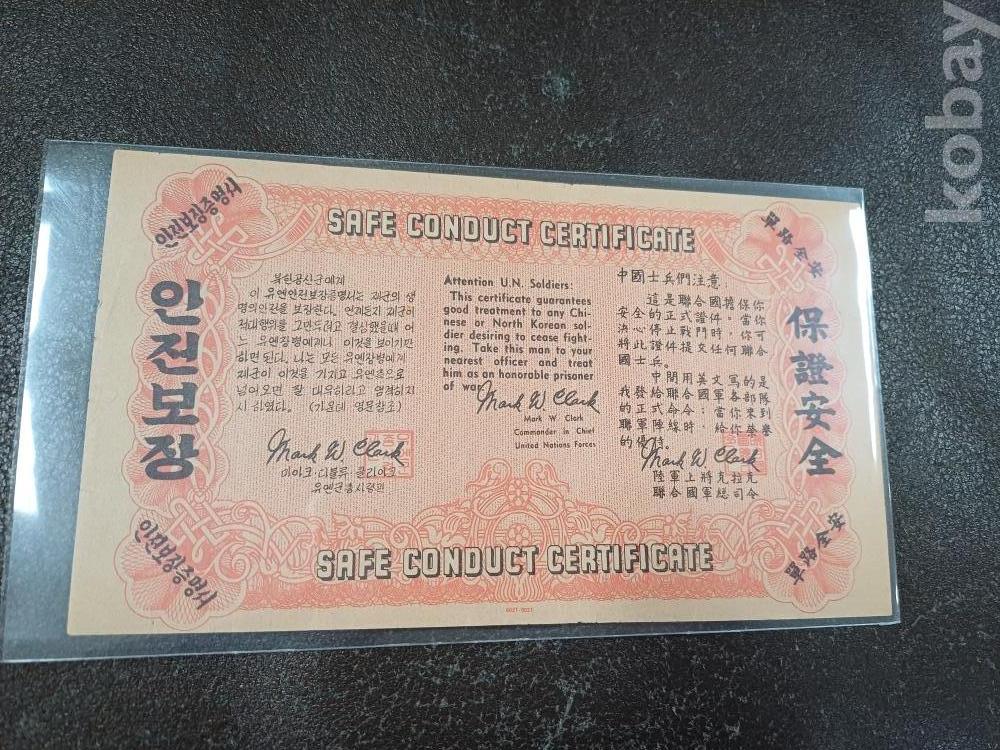 kobay
SAFE CONDUCT CERTIFICATE
안전보장증명서
안전보장
북한공산군에게
이 유엔안전보장증명서는 제군의 생
명의안전을 보장한다. 언제든지 제군이
적대행위를 그만두려고 결심했을때 어
느 유엔장병에게나 이것을 보이기만
하면 된다. 나는 모든 유엔장병에게
제군이 이것을 가지고 유엔측으로
넘어오면 잘 대우하라고 명령하
시 하였다. (가운데 영문참조)
Mark W. Clark
마아크·디블류·클라아크
유엔군총사령관
Attention U.N. Soldiers:
This certificate guarantees
good treatment to any Chi-
nese or North Korean sol-
dier desiring to cease fight-
ing. Take this man to your
nearest officer and treat
him as an honorable prisoner
of war.
Mark W. Clark
Mark W. Clark
Commander in Chief
United Nations Forces
中國士兵們注意
這是聯合國擔保你
安全的正式證件。當你
決心停止戰鬥時，你可
將此證件提交任何聯合
國士兵。
中間用英文寫的是
我發給聯合國軍各部隊
的正式命令：當你來到
聯軍陣線時，給你榮譽
的優待。
Mark W. Clark
陸軍上將克拉克
聯合國軍總司令
保證安全
安全路單
안전보장증명서
安全路單
SAFE CONDUCT CERTIFICATE